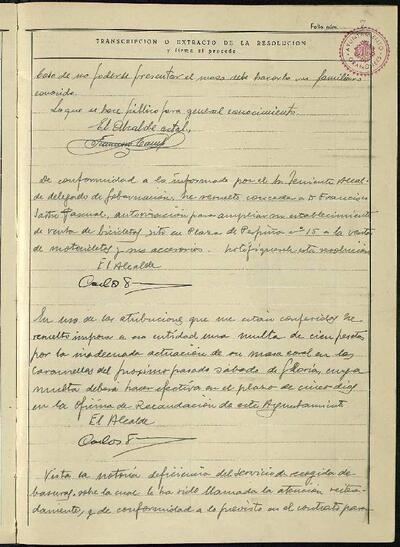 Folio núm.
TRANSCRIPCIÓN O EXTRACTO DE LA RESOLUCIÓN
y firma si procede
AYUNTAMIENTO GRANOLLERS
Caso de no poderse presentar el mozo debe hacerlo un familiar
conocido.
Lo que se hace público para general conocimiento.
El Alcalde actal,
De conformidad a lo informado por el Teniente Alcal-
de delegado de Gobernación, he resuelto conceder a D Francisco
Pascual, autorización para ampliar su establecimiento
de venta de bicicletas sito en Plaza de Perpiña nº 15 a la venta
de motocicletas y sus accesorios. Notifíquese esta resolución
El Alcalde
Carlos
En uso de las atribuciones que me están conferidas he
resuelto imponer a esa entidad una multa de cien pesetas
por la inadecuada actuación de su masa coral en las
caramellas del próximo pasado sábado de Gloria, cuya
multa deberá hacer efectiva en el plazo de cinco días
en la Oficina de Recaudación de este Ayuntamiento
El Alcalde
Carlos
Vista la notoria deficiencia del servicio de recogida de
basuras, sobre la cual le ha sido llamada la atención reitera-
damente, y de conformidad a lo previsto en el contrato para